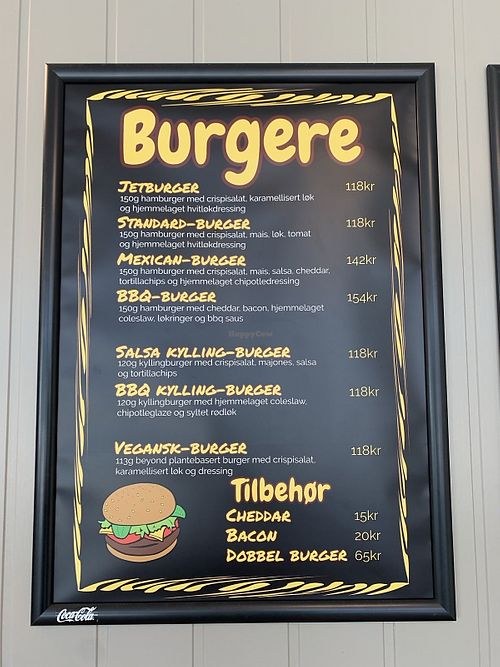 Burgere
JETBURGER 118kr
150g hamburger med crispisalat, karamellisert løk
og hjemmelaget hvitløkdressing
STANDARD-BURGER 118kr
150g hamburger med crispisalat, mais, løk, tomat
og hjemmelaget hvitløkdressing
MEXICAN-BURGER 142kr
150g hamburger med crispisalat, mais, salsa, cheddar,
tortillachips og hjemmelaget chipotledressing
BBQ-BURGER 154kr
150g hamburger med cheddar, bacon, hjemmelaget
coleslaw, løkringer og bbq saus
HappyCow
SALSA KYLLING-BURGER 118kr
120g kyllingburger med crispisalat, majones, salsa
og tortillachips
BBQ KYLLING-BURGER 118kr
120g kyllingburger med hjemmelaget coleslaw,
chipotleglaze og syltet rødløk
VEGANSK-BURGER 118kr
113g beyond plantebasert burger med crispisalat,
karamellisert løk og dressing
Tilbehør
CHEDDAR 15kr
BACON 20kr
DOBBEL BURGER 65kr
Coca-Cola